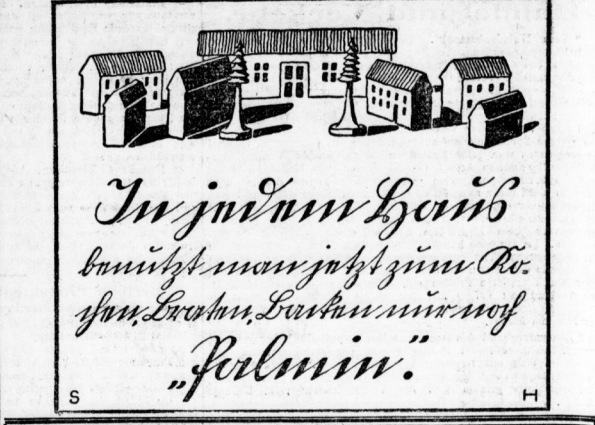 In jedem Haus
benutzt man jetzt zum Ko-
chen, Braten, Backen nur noch
„Palmin“.
S H